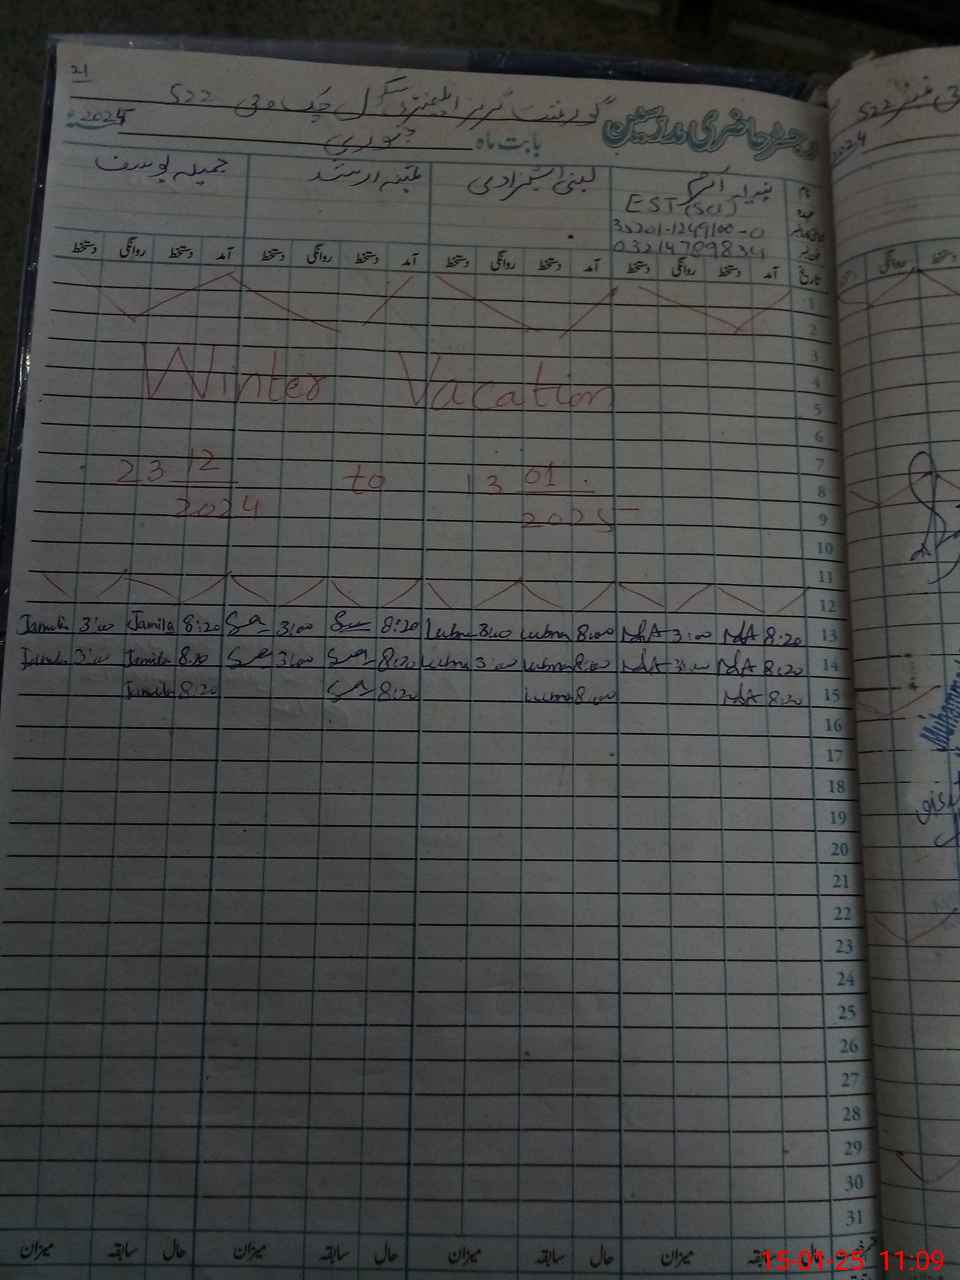 21
رجسٹر حاضری مدرسین گورنمنٹ گرلز ایلیمنٹری سکول چک 522
بابت ماہ جنوری 2025ء
نام لبنیٰ جمیلہ یوسف
EST(Sci)
35201-1249100-0
03214789834
تاریخ آمد دستخط روانگی دستخط آمد دستخط روانگی دستخط آمد دستخط روانگی دستخط آمد دستخط روانگی دستخط
1
2
3
Winter Vacation
4
5
6
7
23 12 2024 to 13 01 2025
8
9
10
11
12
Jamila 3:00 Jamila 8:20 3:00 8:20 Lubna 3:00 Lubna 8:00 3:00 8:20 13
Jamila 3:00 Jamila 8:20 3:00 8:20 Lubna 3:00 Lubna 8:00 3:00 8:20 14
Jamila 8:20 8:20 Lubna 8:00 8:20 15
16
17
18
19
20
21
22
23
24
25
26
27
28
29
30
31
حال سابقہ میزان حال سابقہ میزان حال سابقہ میزان حال سابقہ میزان
15-01-25 11:09
522
2024
روانگی دستخط
Muhamma